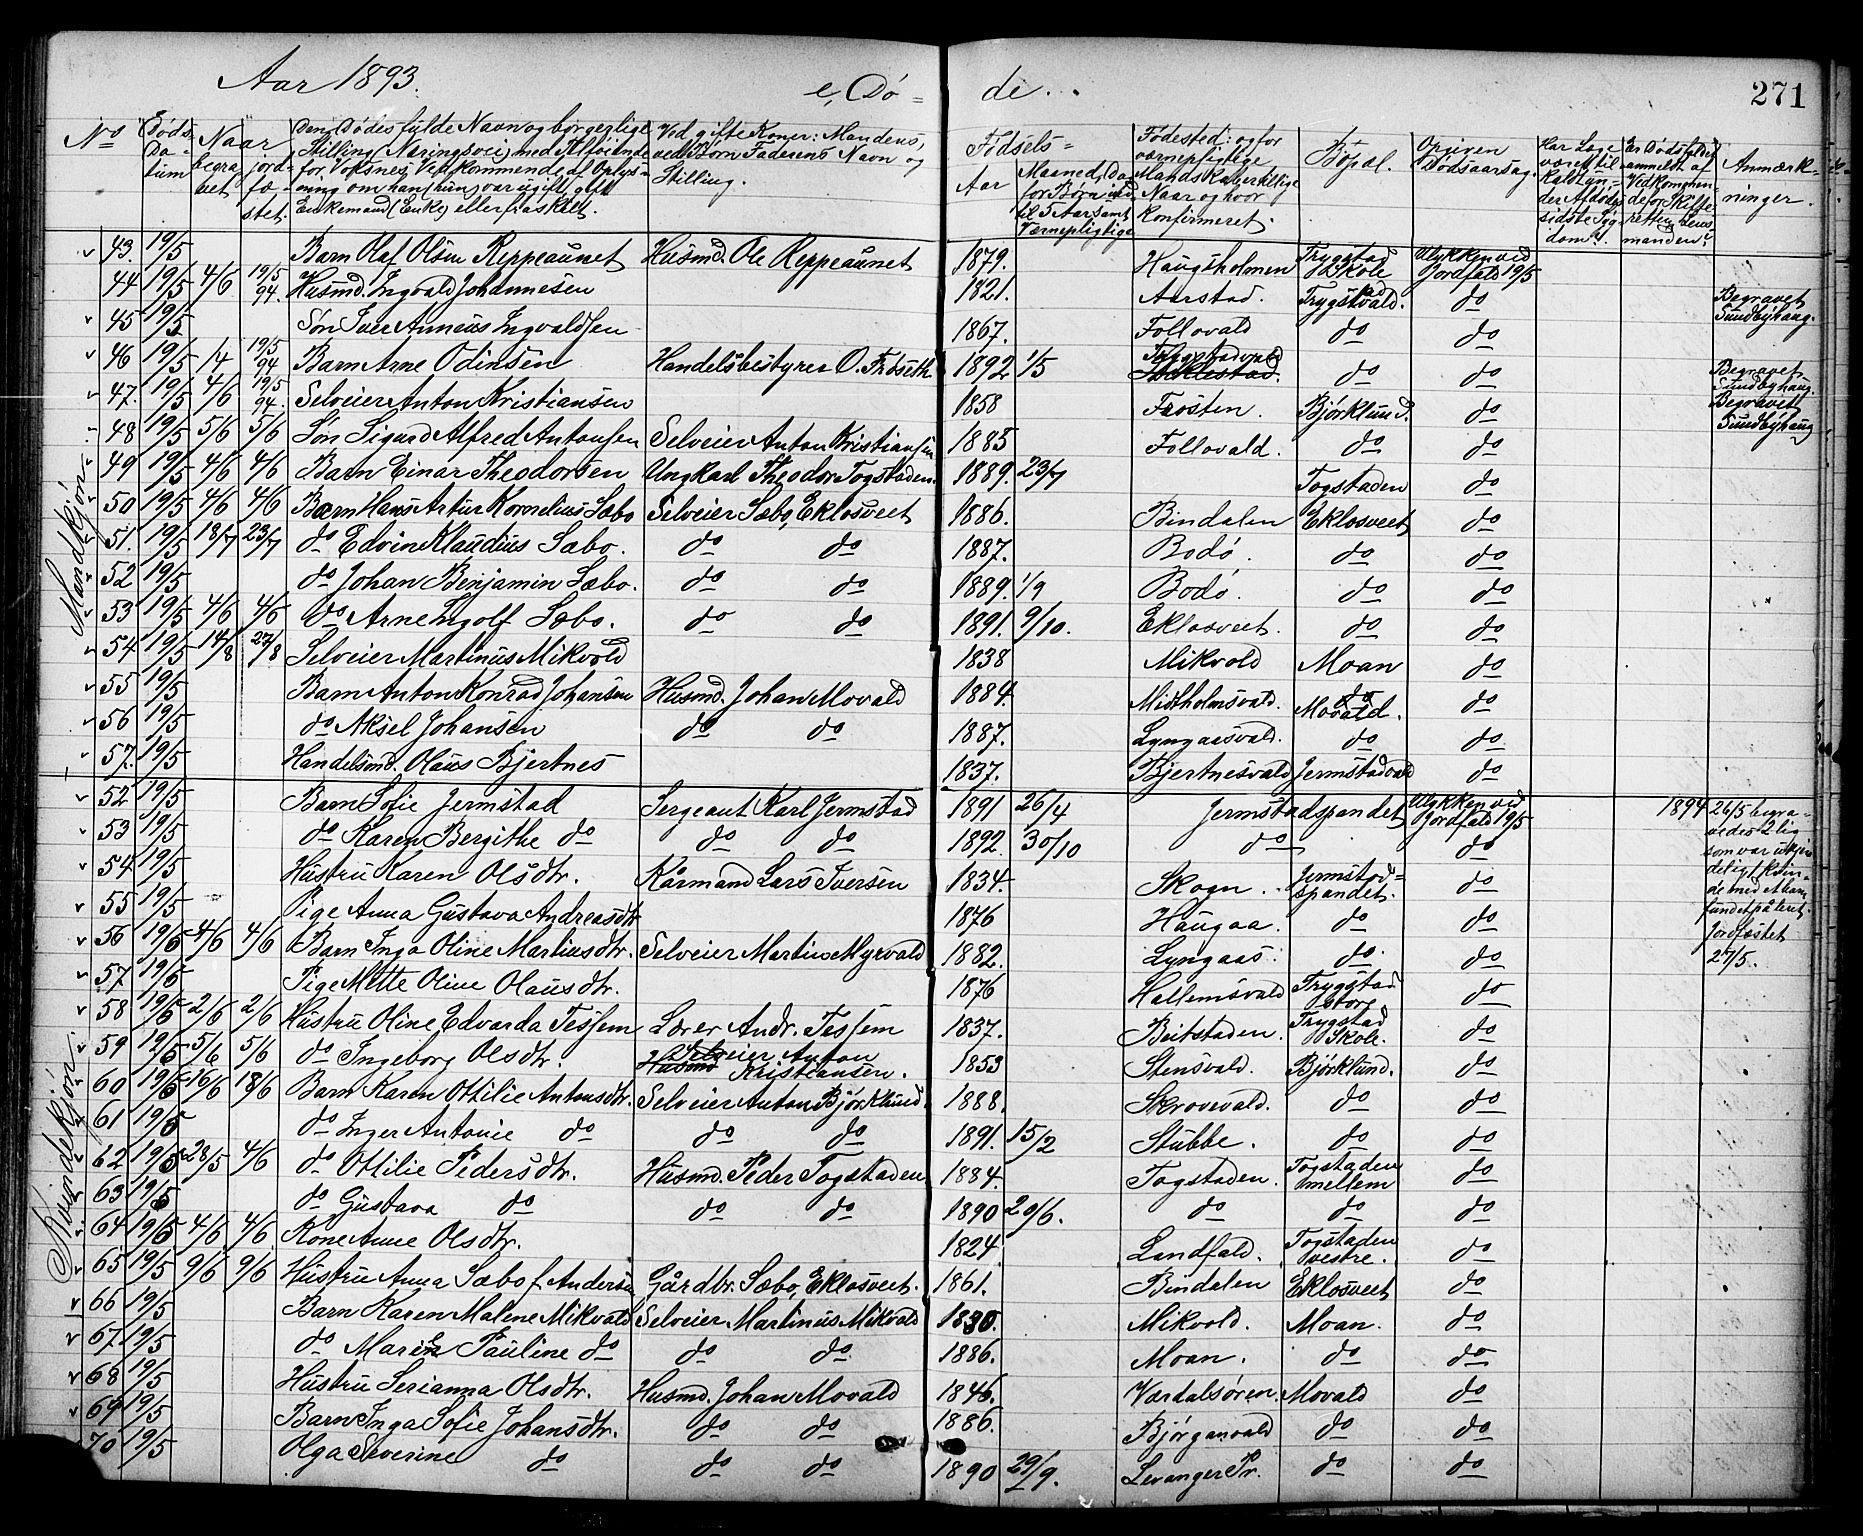 Aar 1893. e, Dö = de.. 271
No Døds- Da- tum Naar begra- vet jord- fæ- stet. Den Dødes fulde Navn og borgerlige Stilling (Næringsvei) med Tilføiende for Voksnes Vedkommende af Oplys- ning om han (hun) var ugift, gift Enkemand (Enke) eller fraskilt. Ved gifte Koner: Mandens, ved Børn Faderens Navn og Stilling. Fødsels- Aar Maaned, Da for Børn ind til 5 Aar samt Værnepligtige Fødested: og for værnepligtige Mandskaber tillige Naar og hvor konfirmeret. Bopæl. Opgiven Dødsaarsag. Har Læge været til- kaldt un- der Afdødes sidste Syg- dom?. Er Dødsfaldet anmeldt af Vedkommen- de for Skifte- retten el Lens- manden? Anmærk- ninger.
Mandkjøn
43. 19/5 Barn Olaf Olsen Reppeaunet Husmd. Ole Reppeaunet 1879. Haugsholmen Trygstad Skole Ulykken ved Jordfald 19/5
44 19/5 4/6 19/5 94. Husmd. Ingvald Johannesen 1821. Aarstad. Trygstadvald. do Begravet Sundbyhaug.
45 19/5 Søn Iver Anneus Ingvaldsen 1867. Follovald do do
46 19/5 1/4 19/5 94 Barn Arne Odinsen Handelsbestyrer O. Trøseth 1892 1/5 Trygstadvald Stiklestad. do do Begravet Sundbyhaug
47. 19/5 4/6 19/5 94. Selveier Anton Kristiansen 1858 Frosten. Bjørklund. do Begravet Sundbyhaug
48 19/5 5/6 5/6 Søn Sigurd Alfred Antonsen Selveier Anton Kristiansen 1885 Follovald. do do
49 19/5 4/6 4/6 Barn Einar Theodorsen Ungkarl Theodor Togstaden. 1889. 23/7 Togstaden do
50 19/5 4/6 4/6 Barn Hans Artur Kornelius Sæbo Selveier Sæbo, Eklosveet 1886. Bindalen Eklosveet do
51. 19/5 18/7 23/7 do Edvin Klaudius Sæbo. do do 1887. Bodö. do do
52 19/5 do Johan Benjamin Sæbo. do do 1889. 1/9 Bodö. do do
53 19/5 4/6 4/6 do Arne Ingolf Sæbo. do do 1891. 9/10. Eklosveet. do do
54 19/5 14/8 27/8 Selveier Martinus Mikvold 1838 Mikvold Moan do
55 19/5 Barn Anton Konrad Johansen Husmd. Johan Movald 1884. Midtholmsvald. do do
56 19/5 do Aksel Johansen do do 1887. Lyngaasvald. Movald. do do
57. 19/5 Handelsmd. Olaus Bjertnes 1837. Bjertnesvald Jermstadvald do
Kvindekjøn
52 19/5 Barn Sofie Jermstad Sergeant Karl Jermstad 1891 26/4 Jermstadspandet Ulykken ved Jordfald 19/5 1894 26/5 begra- vedes 2 lig
53 19/5 do Karen Bergithe do do do 1892. 30/10 do do som var ukjen
54 19/5 Hustru Karen Olsdtr. Kårmand Lars Iversen 1834. Skogn. Jermstad- spandet. do deligt kvin- de med et barn
55 19/5 Pige Anna Gustava Andreasdtr 1876 Haugaa. do do fundet på leret.
56 19/5 4/6 4/6 Barn Inga Oline Martiusdtr. Selveier Martius Myrvald 1882. Lyngaas. do. do Jordfæstet
57 19/5 Pige Mette Oline Olausdtr. 1876 Hallemsvald Trygstad store do 27/5.
58 19/5 2/6 2/6 Hustru Oline Edvarda Tessem Lærer Andr. Tessem 1837. Beitstaden. Trygstad Skole. do
59 19/5 5/6 5/6 do Ingeborg Olsdtr. Husmd Selveier Anton Kristiansen. 1853 Stensvald. Bjørklund. do
60 19/5 16/6 18/6 Barn Karen Ottilie Antonsdtr. Selveier Anton Bjørklund. 1888. Skrovevald. do do
61 19/5 do Inger Antonie do do do 1891. 15/2 Stubbe. do do
62 19/5 28/5 4/6 do Ottilie Pedersdtr. Husmd. Peder Togstaden 1884. Togstaden. Togstaden mellem do
63 19/5 do Gustava do do do 1890 20/6. do do do
64 19/5 4/6 4/6 Kone Anne Olsdtr. 1824 Landfald. Togstaden vestre. do
65 19/5 9/6 9/6 Hustru Anna Sæbo f. Andersen Gårdbr. Sæbo, Eklosveet. 1861. Bindalen Eklosveet do
66 19/5 Barn Karen Malene Mikvald Selveier Martinus Mikvald 1880. Mikvold. Moan. do
67 19/5 do Maren Pauline do do do 1886. Moan. do do
68 19/5 Hustru Serianna Olsdtr. Husmd. Johan Movald 1846. Værdalsøren. Movald do
69 19/5 Barn Inga Sofie Johansdtr. do do 1886. Bjørganvald do do
70 19/5 Olga Severine do do do 1890 29/9. Levanger Pr. do do